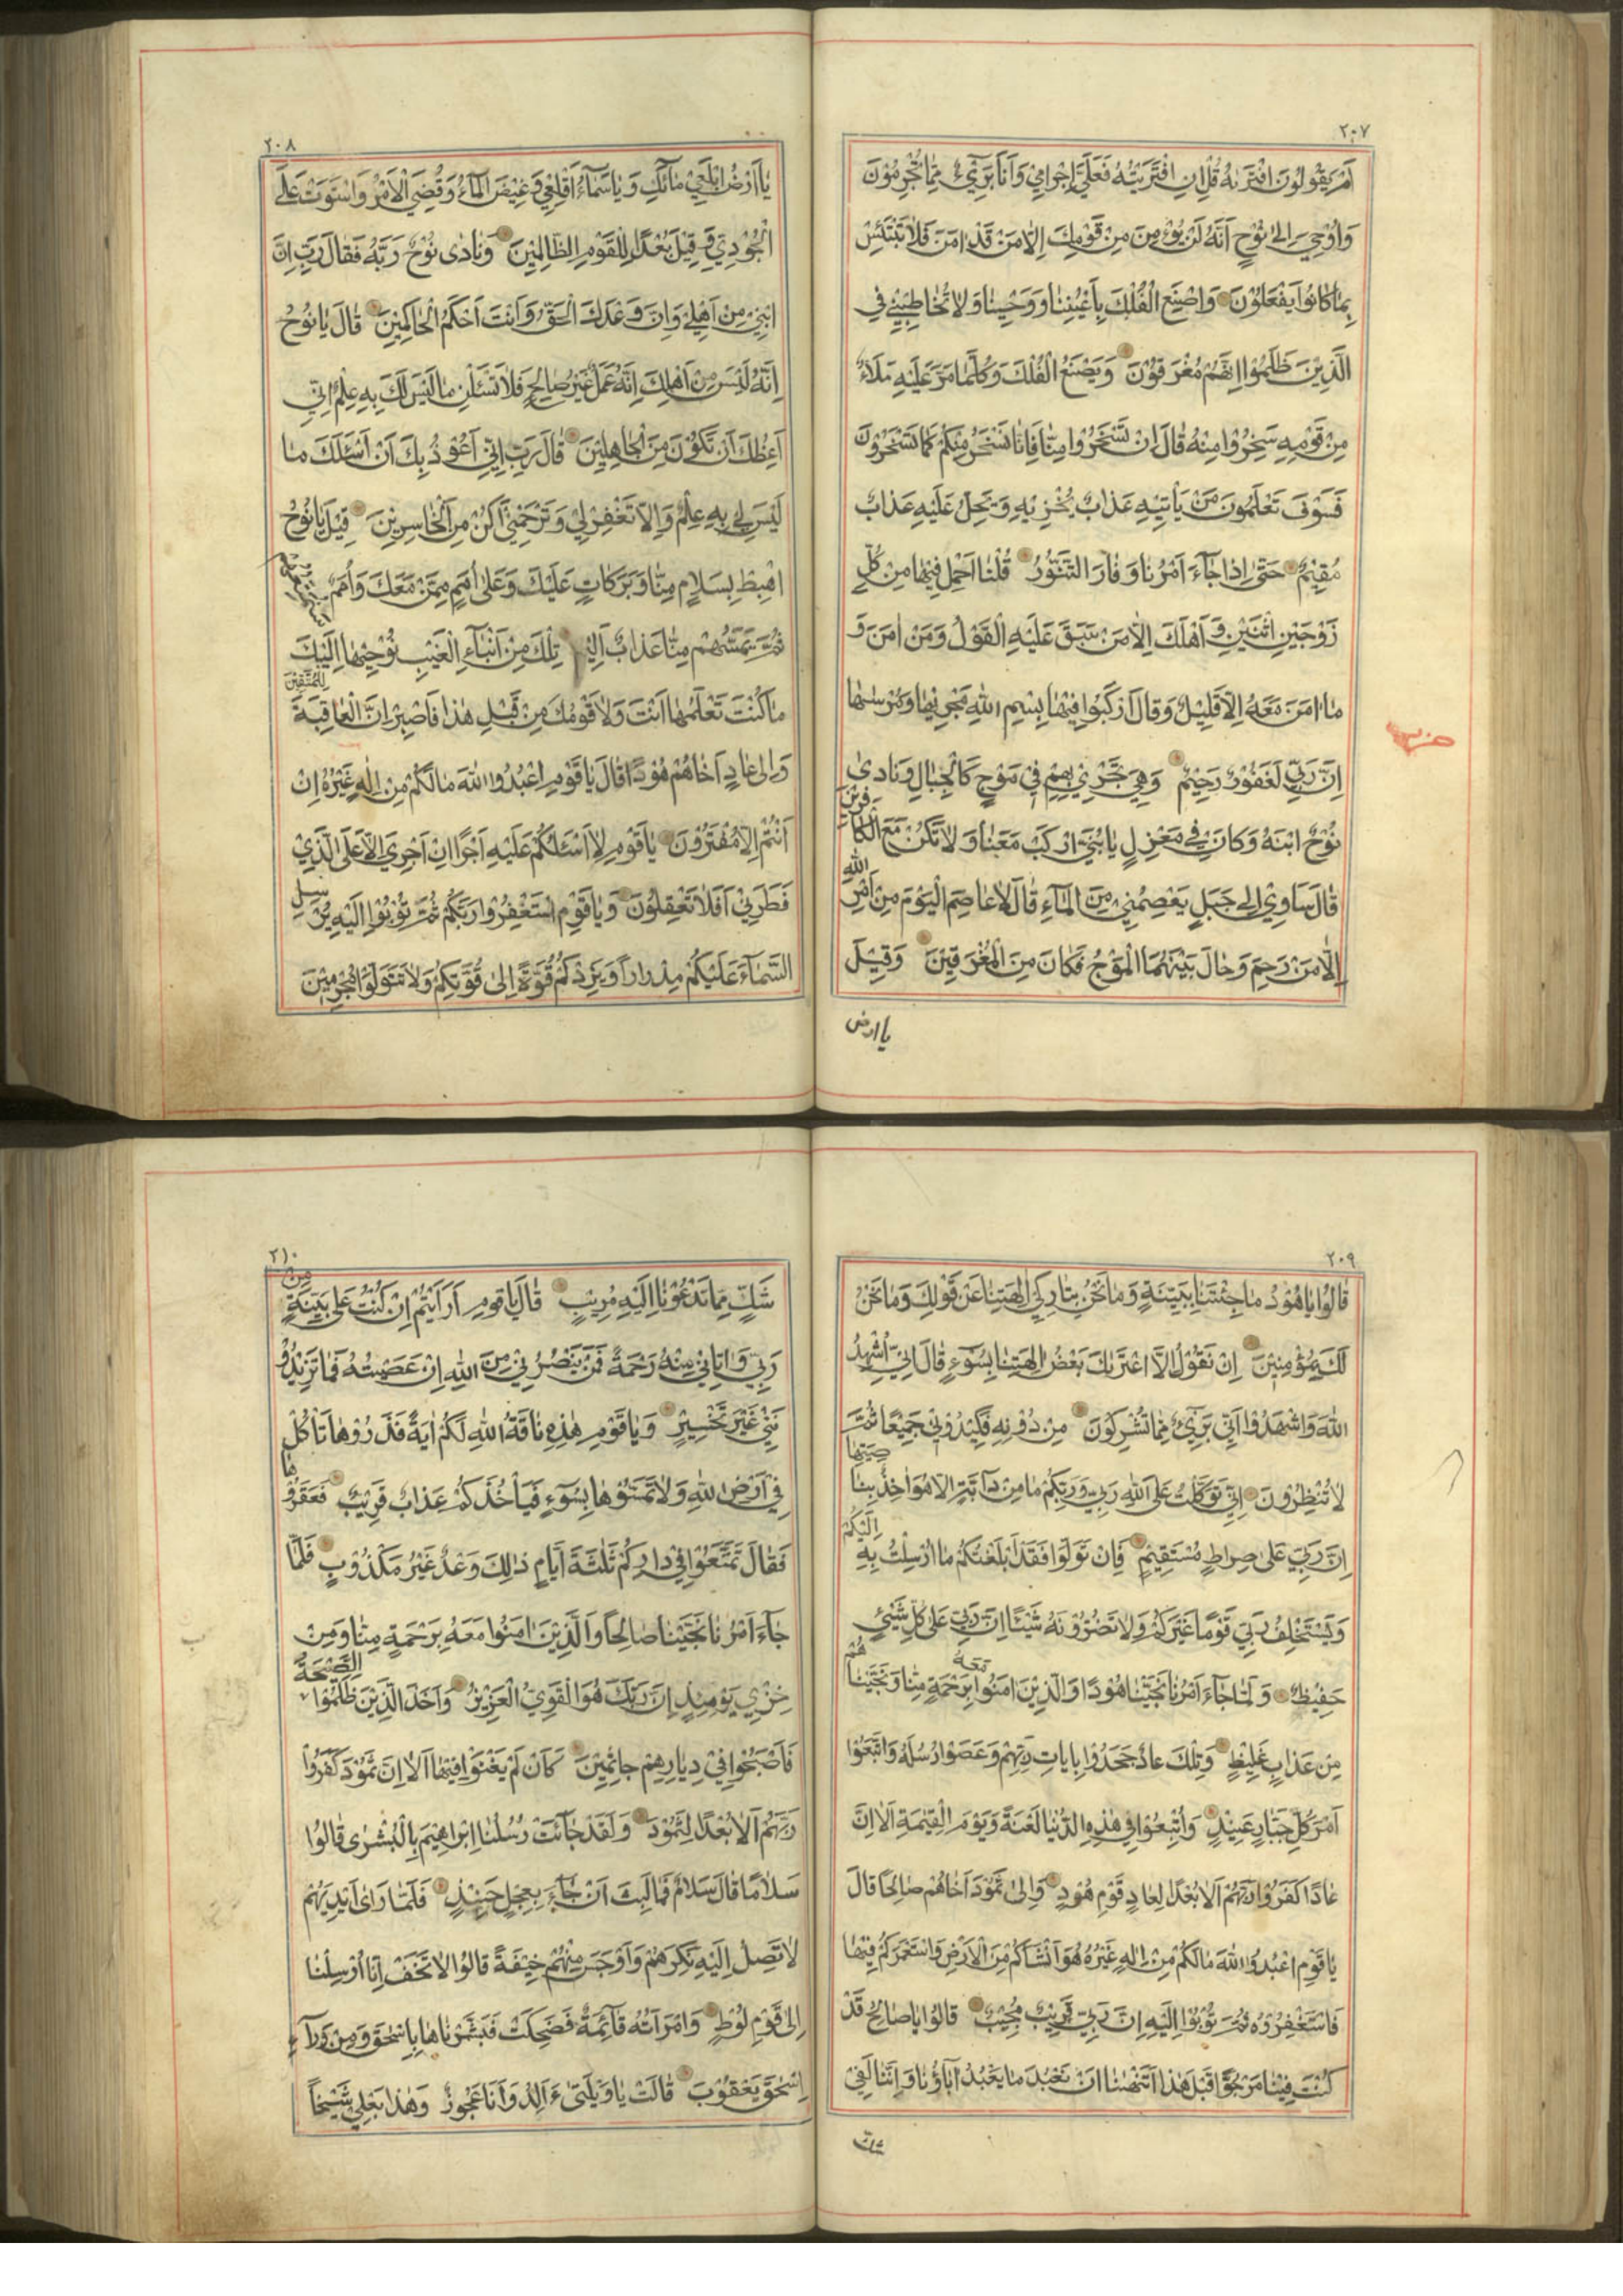 ٢٠٧
اَمْ يَقُولُونَ افْتَرٰيهُ قُلْ اِنِ افْتَرَيْتُهُ فَعَلَيَّ اِجْرَامِي وَاَنَا بَرِٓيءٌ مِمَّا تُجْرِمُوْنَ
وَاُوْحِيَ اِلٰى نُوْحٍ اَنَّهُ لَنْ يُؤْمِنَ مِنْ قَوْمِكَ اِلَّا مَنْ قَدْ اٰمَنَ فَلَا تَبْتَئِسْ
بِمَا كَانُوا يَفْعَلُوْنَ وَاصْنَعِ الْفُلْكَ بِاَعْيُنِنَا وَوَحْيِنَا وَلَا تُخَاطِبْنِي فِي
الَّذِيْنَ ظَلَمُوا اِنَّهُمْ مُغْرَقُوْنَ وَيَصْنَعُ الْفُلْكَ وَكُلَّمَا مَرَّ عَلَيْهِ مَلَاءٌ
مِنْ قَوْمِهِ سَخِرُوْا مِنْهُ قَالَ اِنْ تَسْخَرُوا مِنَّا فَاِنَّا نَسْخَرُ مِنْكُمْ كَمَا تَسْخَرُوْنَ
فَسَوْفَ تَعْلَمُونَ مَنْ يَاْتِيْهِ عَذَابٌ يُخْزِيْهِ وَيَحِلُّ عَلَيْهِ عَذَابٌ
مُقِيْمٌ حَتّٰى اِذَا جَآءَ اَمْرُنَا وَفَارَ التَّنُّوْرُ قُلْنَا احْمِلْ فِيْهَا مِنْ كُلٍّ
زَوْجَيْنِ اثْنَيْنِ وَاَهْلَكَ اِلَّا مَنْ سَبَقَ عَلَيْهِ الْقَوْلُ وَمَنْ اٰمَنَ وَ
مَا اٰمَنَ مَعَهُ اِلَّا قَلِيْلٌ وَقَالَ ارْكَبُوا فِيْهَا بِسْمِ اللهِ مَجْرٰيهَا وَمُرْسٰيهَا
حزب
اِنَّ رَبِّي لَغَفُوْرٌ رَحِيْمٌ وَهِيَ تَجْرِيْ بِهِمْ فِيْ مَوْجٍ كَالْجِبَالِ وَنَادٰى
نُوْحٌ ابْنَهُ وَكَانَ فِي مَعْزِلٍ يَا بُنَيَّ ارْكَبْ مَعَنَا وَلَا تَكُنْ مَعَ الْكَافِرِيْنَ
قَالَ سَاٰوِيْ اِلٰى جَبَلٍ يَعْصِمُنِيْ مِنَ الْمَآءِ قَالَ لَا عَاصِمَ الْيَوْمَ مِنْ اَمْرِ اللهِ
اِلَّا مَنْ رَحِمَ وَحَالَ بَيْنَهُمَا الْمَوْجُ فَكَانَ مِنَ الْمُغْرَقِيْنَ وَقِيْلَ
يا ارض
٢٠٨
يَا اَرْضُ ابْلَعِيْ مَآئَكِ وَيَا سَمَآءُ اَقْلِعِيْ وَغِيْضَ الْمَآءُ وَقُضِيَ الْاَمْرُ وَاسْتَوَتْ عَلَى
الْجُوْدِيِّ وَقِيْلَ بُعْدًا لِلْقَوْمِ الظَّالِمِيْنَ وَنَادٰى نُوْحٌ رَبَّهُ فَقَالَ رَبِّ اِنَّ
ابْنِيْ مِنْ اَهْلِيْ وَاِنَّ وَعْدَكَ الْحَقُّ وَاَنْتَ اَحْكَمُ الْحَاكِمِيْنَ قَالَ يَا نُوْحُ
اِنَّهُ لَيْسَ مِنْ اَهْلِكَ اِنَّهُ عَمَلٌ غَيْرُ صَالِحٍ فَلَا تَسْئَلْنِ مَا لَيْسَ لَكَ بِهِ عِلْمٌ اِنِّي
اَعِظُكَ اَنْ تَكُوْنَ مِنَ الْجَاهِلِيْنَ قَالَ رَبِّ اِنِّيْ اَعُوْذُ بِكَ اَنْ اَسْئَلَكَ مَا
لَيْسَ لِي بِهِ عِلْمٌ وَاِلَّا تَغْفِرْ لِيْ وَتَرْحَمْنِيْ اَكُنْ مِنَ الْخَاسِرِيْنَ قِيْلَ يَا نُوْحُ
اهْبِطْ بِسَلَامٍ مِنَّا وَبَرَكَاتٍ عَلَيْكَ وَعَلٰى اُمَمٍ مِمَّنْ مَعَكَ وَاُمَمٌ سَنُمَتِّعُهُمْ
ثُمَّ يَمَسُّهُمْ مِنَّا عَذَابٌ اَلِيْمٌ تِلْكَ مِنْ اَنْبَآءِ الْغَيْبِ نُوْحِيْهَا اِلَيْكَ
مَا كُنْتَ تَعْلَمُهَا اَنْتَ وَلَا قَوْمُكَ مِنْ قَبْلِ هٰذَا فَاصْبِرْ اِنَّ الْعَاقِبَةَ لِلْمُتَّقِيْنَ
وَاِلٰى عَادٍ اَخَاهُمْ هُوْدًا قَالَ يَا قَوْمِ اعْبُدُوا اللهَ مَا لَكُمْ مِنْ اِلٰهٍ غَيْرُهُ اِنْ
اَنْتُمْ اِلَّا مُفْتَرُوْنَ يَا قَوْمِ لَا اَسْئَلُكُمْ عَلَيْهِ اَجْرًا اِنْ اَجْرِيَ اِلَّا عَلَى الَّذِيْ
فَطَرَنِيْ اَفَلَا تَعْقِلُوْنَ وَيَا قَوْمِ اسْتَغْفِرُوْا رَبَّكُمْ ثُمَّ تُوْبُوْا اِلَيْهِ يُرْسِلِ
السَّمَآءَ عَلَيْكُمْ مِدْرَارًا وَيَزِدْكُمْ قُوَّةً اِلٰى قُوَّتِكُمْ وَلَا تَتَوَلَّوْا مُجْرِمِيْنَ
٢٠٩
قَالُوْا يَا هُوْدُ مَا جِئْتَنَا بِبَيِّنَةٍ وَمَا نَحْنُ بِتَارِكِيْ اٰلِهَتِنَا عَنْ قَوْلِكَ وَمَا نَحْنُ
لَكَ بِمُؤْمِنِيْنَ اِنْ نَقُوْلُ اِلَّا اعْتَرٰيكَ بَعْضُ اٰلِهَتِنَا بِسُوْٓءٍ قَالَ اِنِّيْ اُشْهِدُ
اللهَ وَاشْهَدُوْا اَنِّيْ بَرِٓيْءٌ مِمَّا تُشْرِكُوْنَ مِنْ دُوْنِهِ فَكِيْدُوْنِيْ جَمِيْعًا ثُمَّ
لَا تُنْظِرُوْنَ اِنِّيْ تَوَكَّلْتُ عَلَى اللهِ رَبِّيْ وَرَبِّكُمْ مَا مِنْ دَآبَّةٍ اِلَّا هُوَ اٰخِذٌ بِنَاصِيَتِهَا
اِنَّ رَبِّيْ عَلٰى صِرَاطٍ مُسْتَقِيْمٍ فَاِنْ تَوَلَّوْا فَقَدْ اَبْلَغْتُكُمْ مَا اُرْسِلْتُ بِهِ اِلَيْكُمْ
وَيَسْتَخْلِفُ رَبِّيْ قَوْمًا غَيْرَكُمْ وَلَا تَضُرُّوْنَهُ شَيْئًا اِنَّ رَبِّيْ عَلٰى كُلِّ شَيْئٍ
حَفِيْظٌ وَلَمَّا جَآءَ اَمْرُنَا نَجَّيْنَا هُوْدًا وَالَّذِيْنَ اٰمَنُوْا مَعَهُ بِرَحْمَةٍ مِنَّا وَنَجَّيْنَاهُمْ
مِنْ عَذَابٍ غَلِيْظٍ وَتِلْكَ عَادٌ جَحَدُوْا بِاٰيَاتِ رَبِّهِمْ وَعَصَوْا رُسُلَهُ وَاتَّبَعُوْا
اَمْرَ كُلِّ جَبَّارٍ عَنِيْدٍ وَاُتْبِعُوْا فِي هٰذِهِ الدُّنْيَا لَعْنَةً وَيَوْمَ الْقِيٰمَةِ اَلَا اِنَّ
عَادًا كَفَرُوْا رَبَّهُمْ اَلَا بُعْدًا لِعَادٍ قَوْمِ هُوْدٍ وَاِلٰى ثَمُوْدَ اَخَاهُمْ صَالِحًا قَالَ
يَا قَوْمِ اعْبُدُوا اللهَ مَا لَكُمْ مِنْ اِلٰهٍ غَيْرُهُ هُوَ اَنْشَاَكُمْ مِنَ الْاَرْضِ وَاسْتَعْمَرَكُمْ فِيْهَا
فَاسْتَغْفِرُوْهُ ثُمَّ تُوْبُوْا اِلَيْهِ اِنَّ رَبِّيْ قَرِيْبٌ مُجِيْبٌ قَالُوْا يَا صَالِحُ قَدْ
كُنْتَ فِيْنَا مَرْجُوًّا قَبْلَ هٰذَا اَتَنْهٰينَا اَنْ نَعْبُدَ مَا يَعْبُدُ اٰبَآؤُنَا وَاِنَّنَا لَفِيْ
شك
٢١٠
شَكٍّ مِمَّا تَدْعُوْنَا اِلَيْهِ مُرِيْبٍ قَالَ يَا قَوْمِ اَرَاَيْتُمْ اِنْ كُنْتُ عَلٰى بَيِّنَةٍ مِنْ
رَبِّيْ وَاٰتَانِيْ مِنْهُ رَحْمَةً فَمَنْ يَنْصُرُنِيْ مِنَ اللهِ اِنْ عَصَيْتُهُ فَمَا تَزِيْدُوْ
نَنِيْ غَيْرَ تَخْسِيْرٍ وَيَا قَوْمِ هٰذِهِ نَاقَةُ اللهِ لَكُمْ اٰيَةً فَذَرُوْهَا تَاْكُلْ
فِيْ اَرْضِ اللهِ وَلَا تَمَسُّوْهَا بِسُوْٓءٍ فَيَاْخُذَكُمْ عَذَابٌ قَرِيْبٌ فَعَقَرُوْهَا
فَقَالَ تَمَتَّعُوْا فِيْ دَارِكُمْ ثَلٰثَةَ اَيَّامٍ ذٰلِكَ وَعْدٌ غَيْرُ مَكْذُوْبٍ فَلَمَّا
جَآءَ اَمْرُنَا نَجَّيْنَا صَالِحًا وَالَّذِيْنَ اٰمَنُوْا مَعَهُ بِرَحْمَةٍ مِنَّا وَمِنْ
خِزْيِ يَوْمِئِذٍ اِنَّ رَبَّكَ هُوَ الْقَوِيُّ الْعَزِيْزُ وَاَخَذَ الَّذِيْنَ ظَلَمُوا الصَّيْحَةُ
فَاَصْبَحُوْا فِيْ دِيَارِهِمْ جَاثِمِيْنَ كَاَنْ لَمْ يَغْنَوْا فِيْهَا اَلَا اِنَّ ثَمُوْدَ كَفَرُوْا
رَبَّهُمْ اَلَا بُعْدًا لِثَمُوْدَ وَلَقَدْ جَآئَتْ رُسُلُنَا اِبْرَاهِيْمَ بِالْبُشْرٰى قَالُوْا
سَلَامًا قَالَ سَلَامٌ فَمَا لَبِثَ اَنْ جَآءَ بِعِجْلٍ حَنِيْذٍ فَلَمَّا رَاٰى اَيْدِيَهُمْ
لَا تَصِلُ اِلَيْهِ نَكِرَهُمْ وَاَوْجَسَ مِنْهُمْ خِيْفَةً قَالُوْا لَا تَخَفْ اِنَّا اُرْسِلْنَا
اِلٰى قَوْمِ لُوْطٍ وَامْرَاَتُهُ قَآئِمَةٌ فَضَحِكَتْ فَبَشَّرْنَاهَا بِاِسْحٰقَ وَمِنْ وَرَآءِ
اِسْحٰقَ يَعْقُوْبَ قَالَتْ يَا وَيْلَتٰى ءَاَلِدُ وَاَنَا عَجُوْزٌ وَهٰذَا بَعْلِيْ شَيْخًا